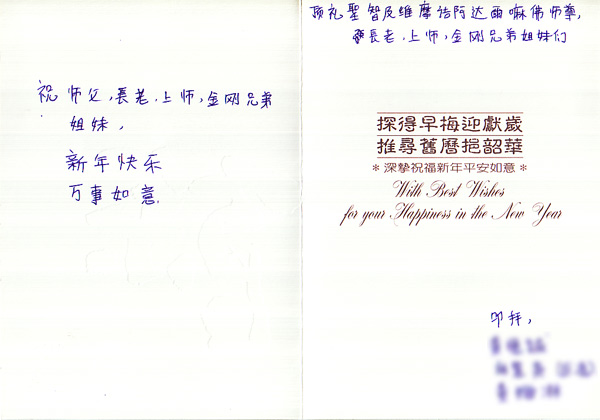 祝 师父,長老,上师,金刚兄弟
姐妹,
新年快乐
万事如意
顶礼聖智及维摩诘阿达尔嘛佛师尊,
長老,上师,金刚兄弟姐妹们
探得早梅迎獻歲
推尋舊曆挹韶華
*深摯祝福新年平安如意*
With Best Wishes
for your Happiness in the New Year
叩拜,